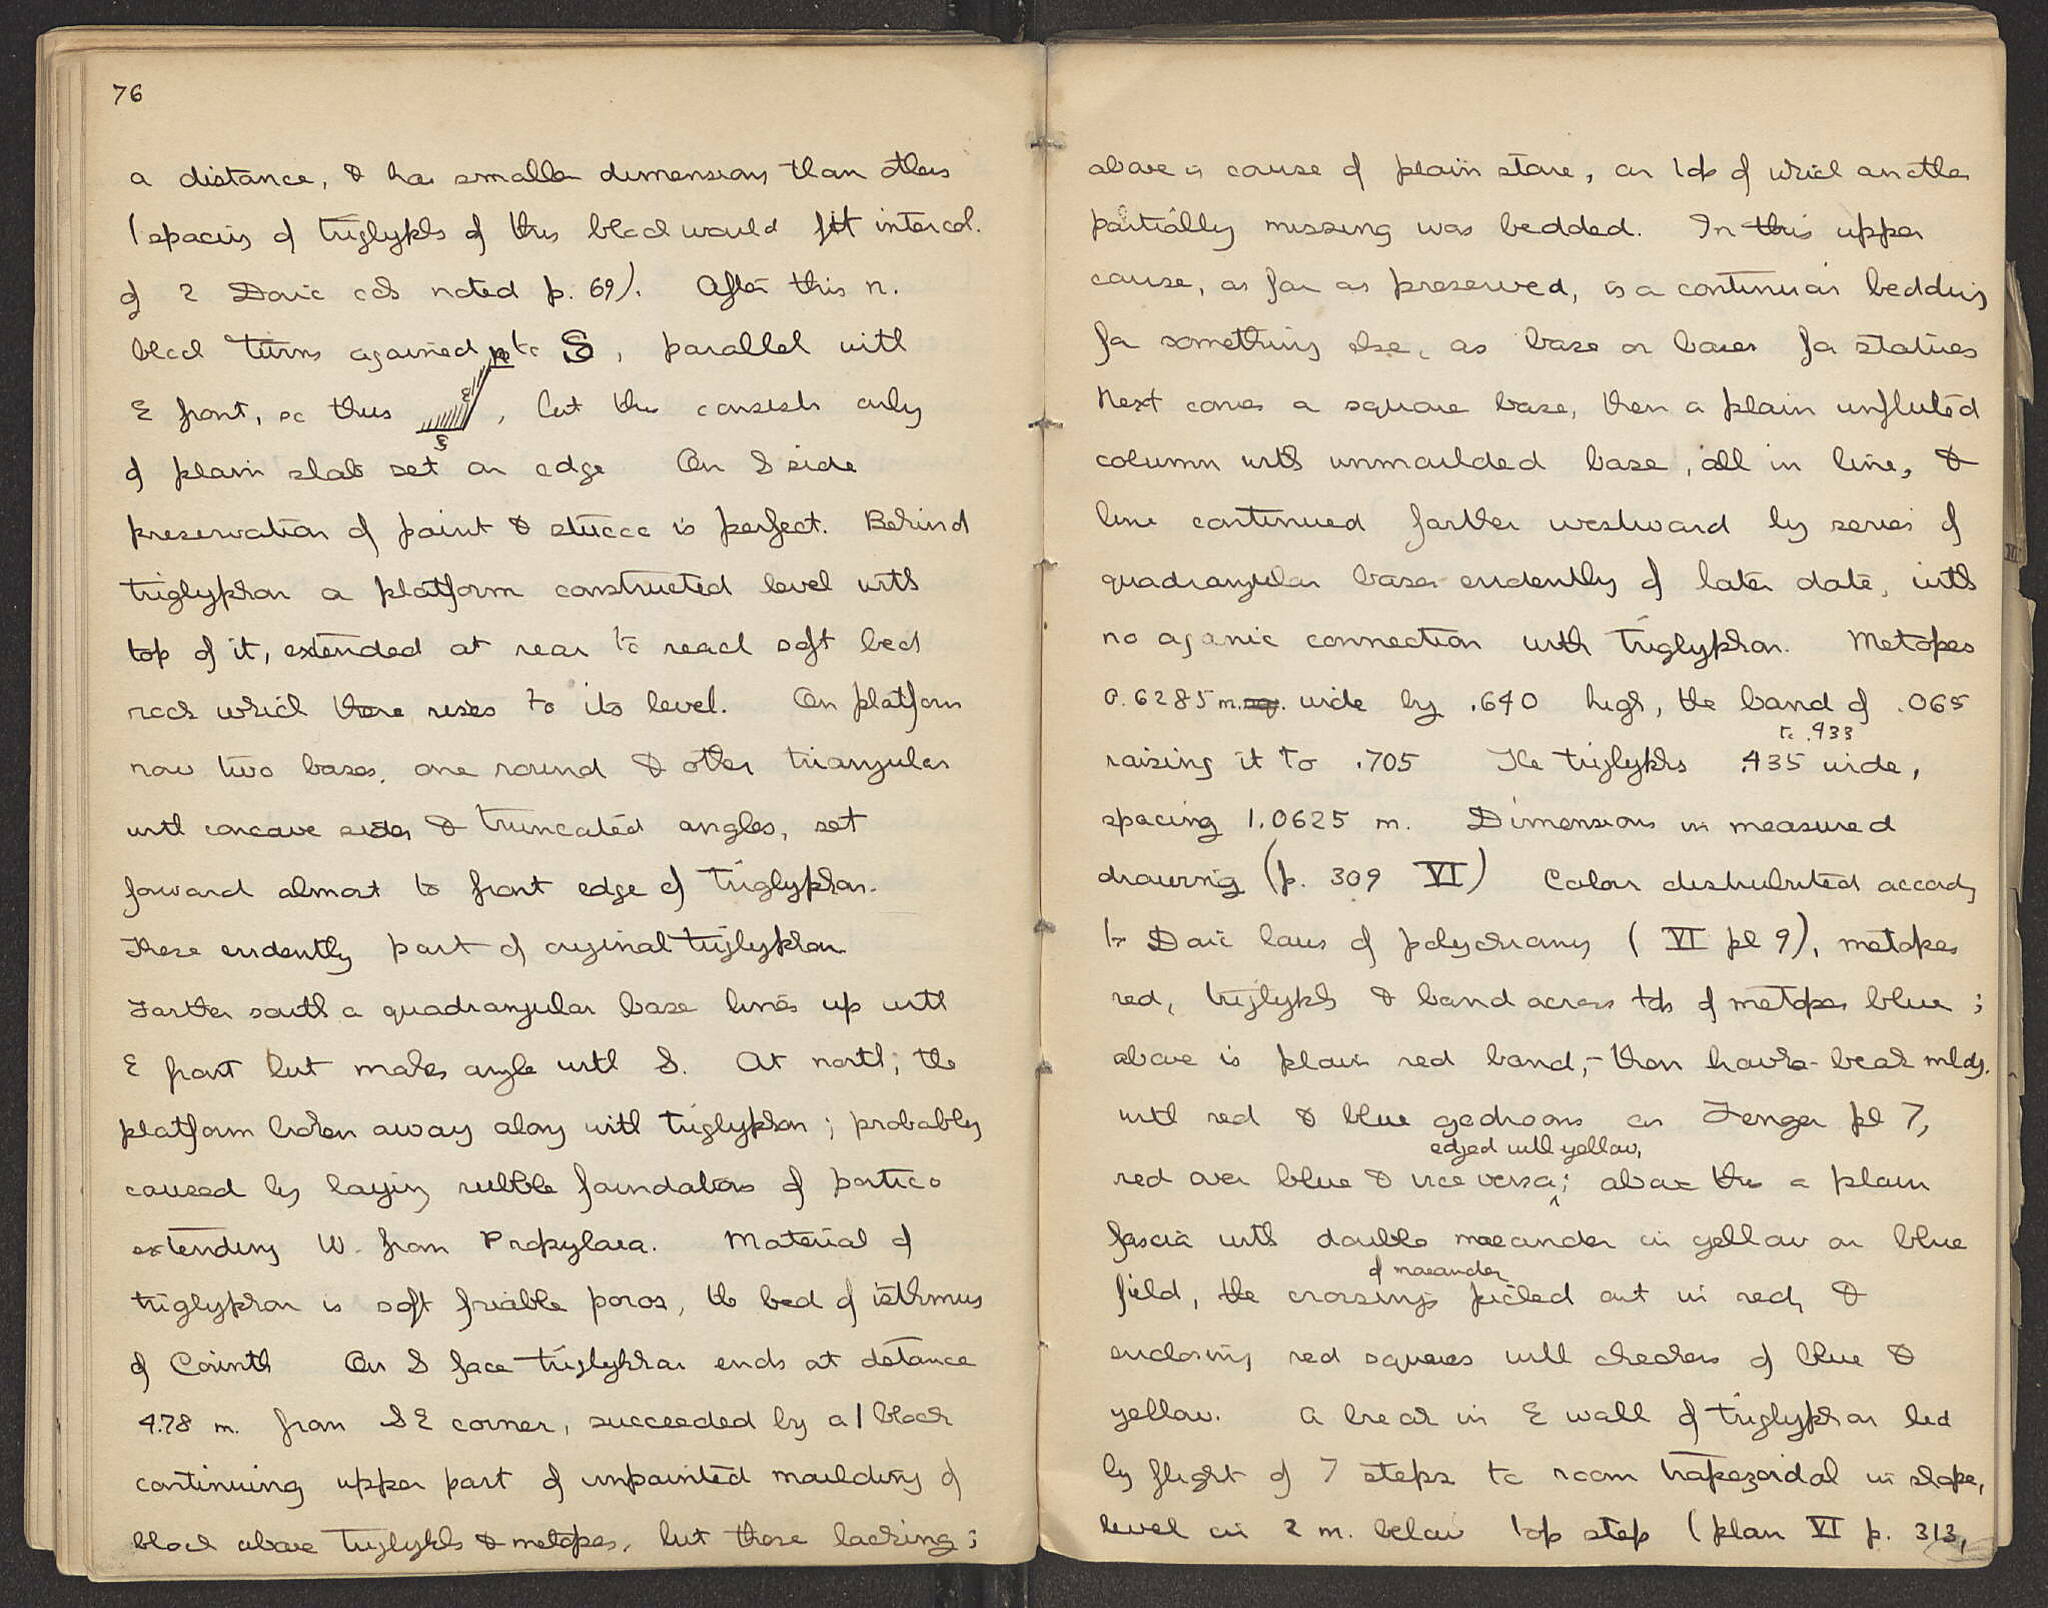 76
a distance, & has smaller dimensions than others
(spacing of triglyphs of this block would fit intercol.
of 2 Doric cols noted p. 69). After this n.
block turns against to S, parallel with
E front, so thus E S, but this consists only
of plain slab set on edge On S side
preservation of paint & stucco is perfect. Behind
triglyphon a platform constructed level with
top of it, extended at rear to reach soft bed
rock which there rises to its level. On platform
now two bases, one round & other triangular
with concave sides & truncated angles, set
forward almost to front edge of triglyphon.
These evidently part of original triglyphon
Farther south a quadrangular base lines up with
E front but makes angle with S. At north, the
platform broken away along with triglyphon; probably
caused by laying rubble foundations of portico
extending W. from Propylaea. Material of
triglyphon is soft friable poros, the bed of isthmus
of Corinth On S face triglyphon ends at distance
4.78 m. from SE corner, succeeded by a l block
continuing upper part of unpainted moulding of
block above triglyphs & metopes, but those lacking;
above is course of plain stone, on top of which another
partially missing was bedded. In this upper
course, as far as preserved, is a continuous bedding
for something else, as base or bases for statues
Next comes a square base, then a plain unfluted
column with unmoulded base, all in line, &
line continued farther westward by series of
quadrangular bases evidently of later date, with
no organic connection with triglyphon. Metopes
0.6285 m. wide by .640 high, the band of .065
to .433
raising it to .705 The triglyphs .435 wide,
spacing 1.0625 m. Dimensions in measured
drawing (p. 309 VI) Colour distributed accordg
to Doric laws of polychromy (VI pl 9), metopes
red, triglyphs & band across tops of metopes blue;
above is plain red band,- then hawks-beak mldg.
with red & blue godroons as Fenger pl 7,
edged with yellow,
red over blue & vice versa; above this a plain
fascia with double maeander in yellow on blue
of maeander
field, the crossings picked out in red, &
enclosing red squares with checkers of blue &
yellow. A break in E wall of triglyphon led
by flight of 7 steps to room trapezoidal in shape,
level in 2 m. below top step (plan VI p. 313,